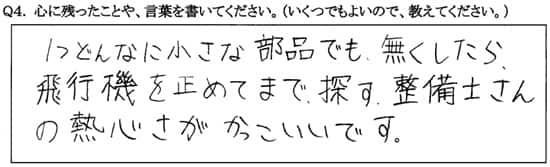 Q4. 心に残ったことや、言葉を書いてください。（いくつでもよいので、教えてください。）
1つどんなに小さな部品でも、無くしたら、
飛行機を止めてまで、探す、整備士さん
の熱心さがかっこいいです。